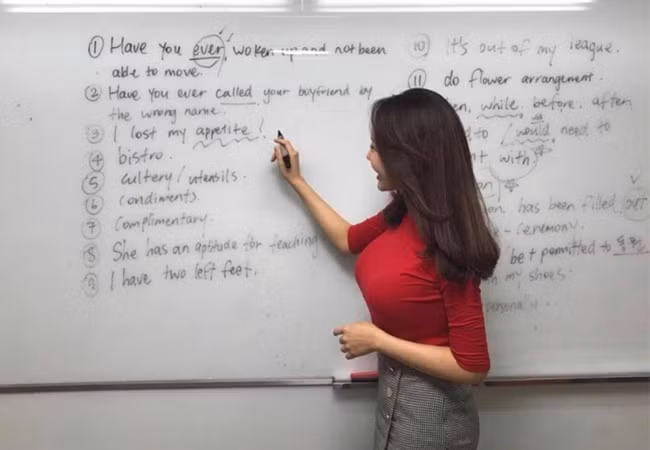 ① Have you ever, woken up and not been
able to move.
② Have you ever called your boyfriend by
the wrong name.
③ I lost my appetite!
④ bistro.
⑤ cultery / utensils.
⑥ condiments.
⑦ Complimentary.
⑧ She has an aptitude for teaching
⑨ I have two left feet.
⑩ It's out of my league.
⑪ do flower arrangement.
while. before. after
to / would need to
with
has been filled out
- ceremony.
be + permitted to
in my shoes.